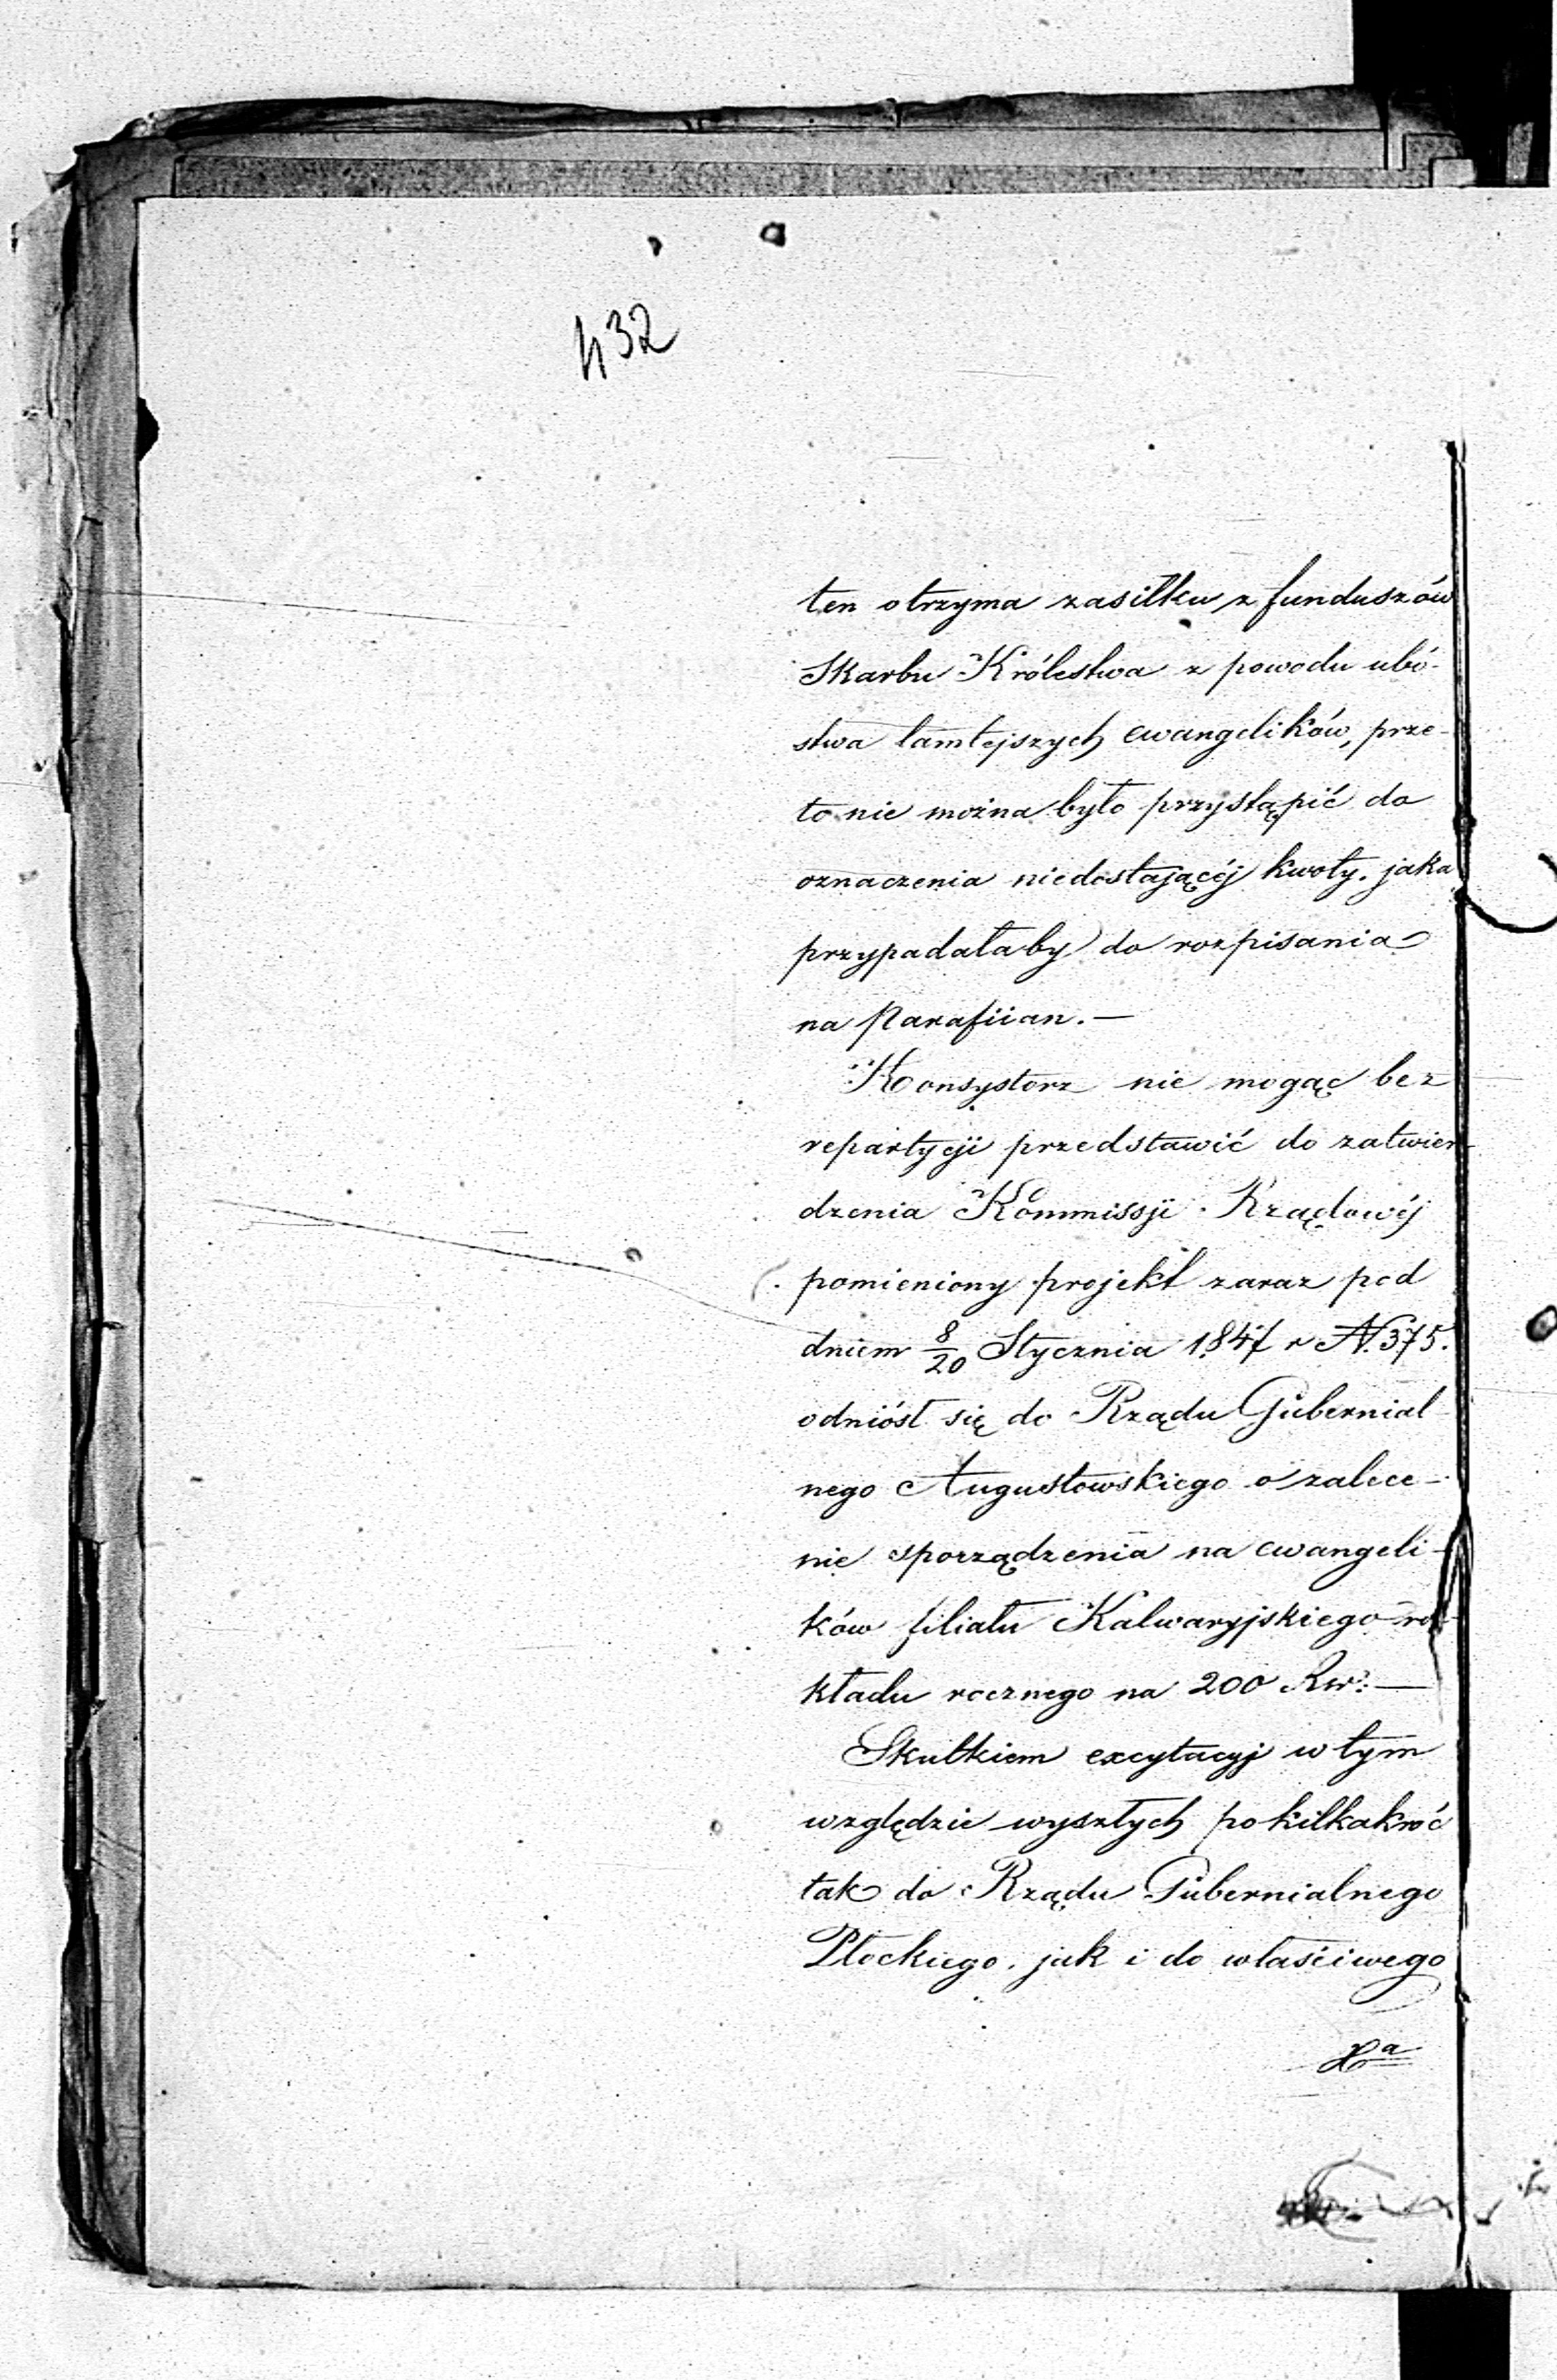 432
ten otrzyma zasiłku z funduszów
Skarbu Królestwa z powodu ubó-
stwa tamtejszych ewangelików, prze-
to nie można było przystąpić do
oznaczenia niedostającéj kwoty, jaka
przypadałaby do rozpisania
na Parafiian. —
Konsystorz nie mogąc bez
repartycji przedstawić do zatwier-
dzenia Kommissji Rządowéj
pomieniony projekt zaraz pod
dniem 8/20 Stycznia 1847 r N. 375.
odniósł się do Rządu Gubernial-
nego Augustowskiego o zalece-
nie sporządzenia na ewangeli-
ków filiału Kalwaryjskiego
kładu rocznego na 200 Rsr: —
Skutkiem excytacyj w tym
względzie wyszłych po kilkakroć
tak do Rządu Gubernialnego
Płockiego, jak i do właściwego